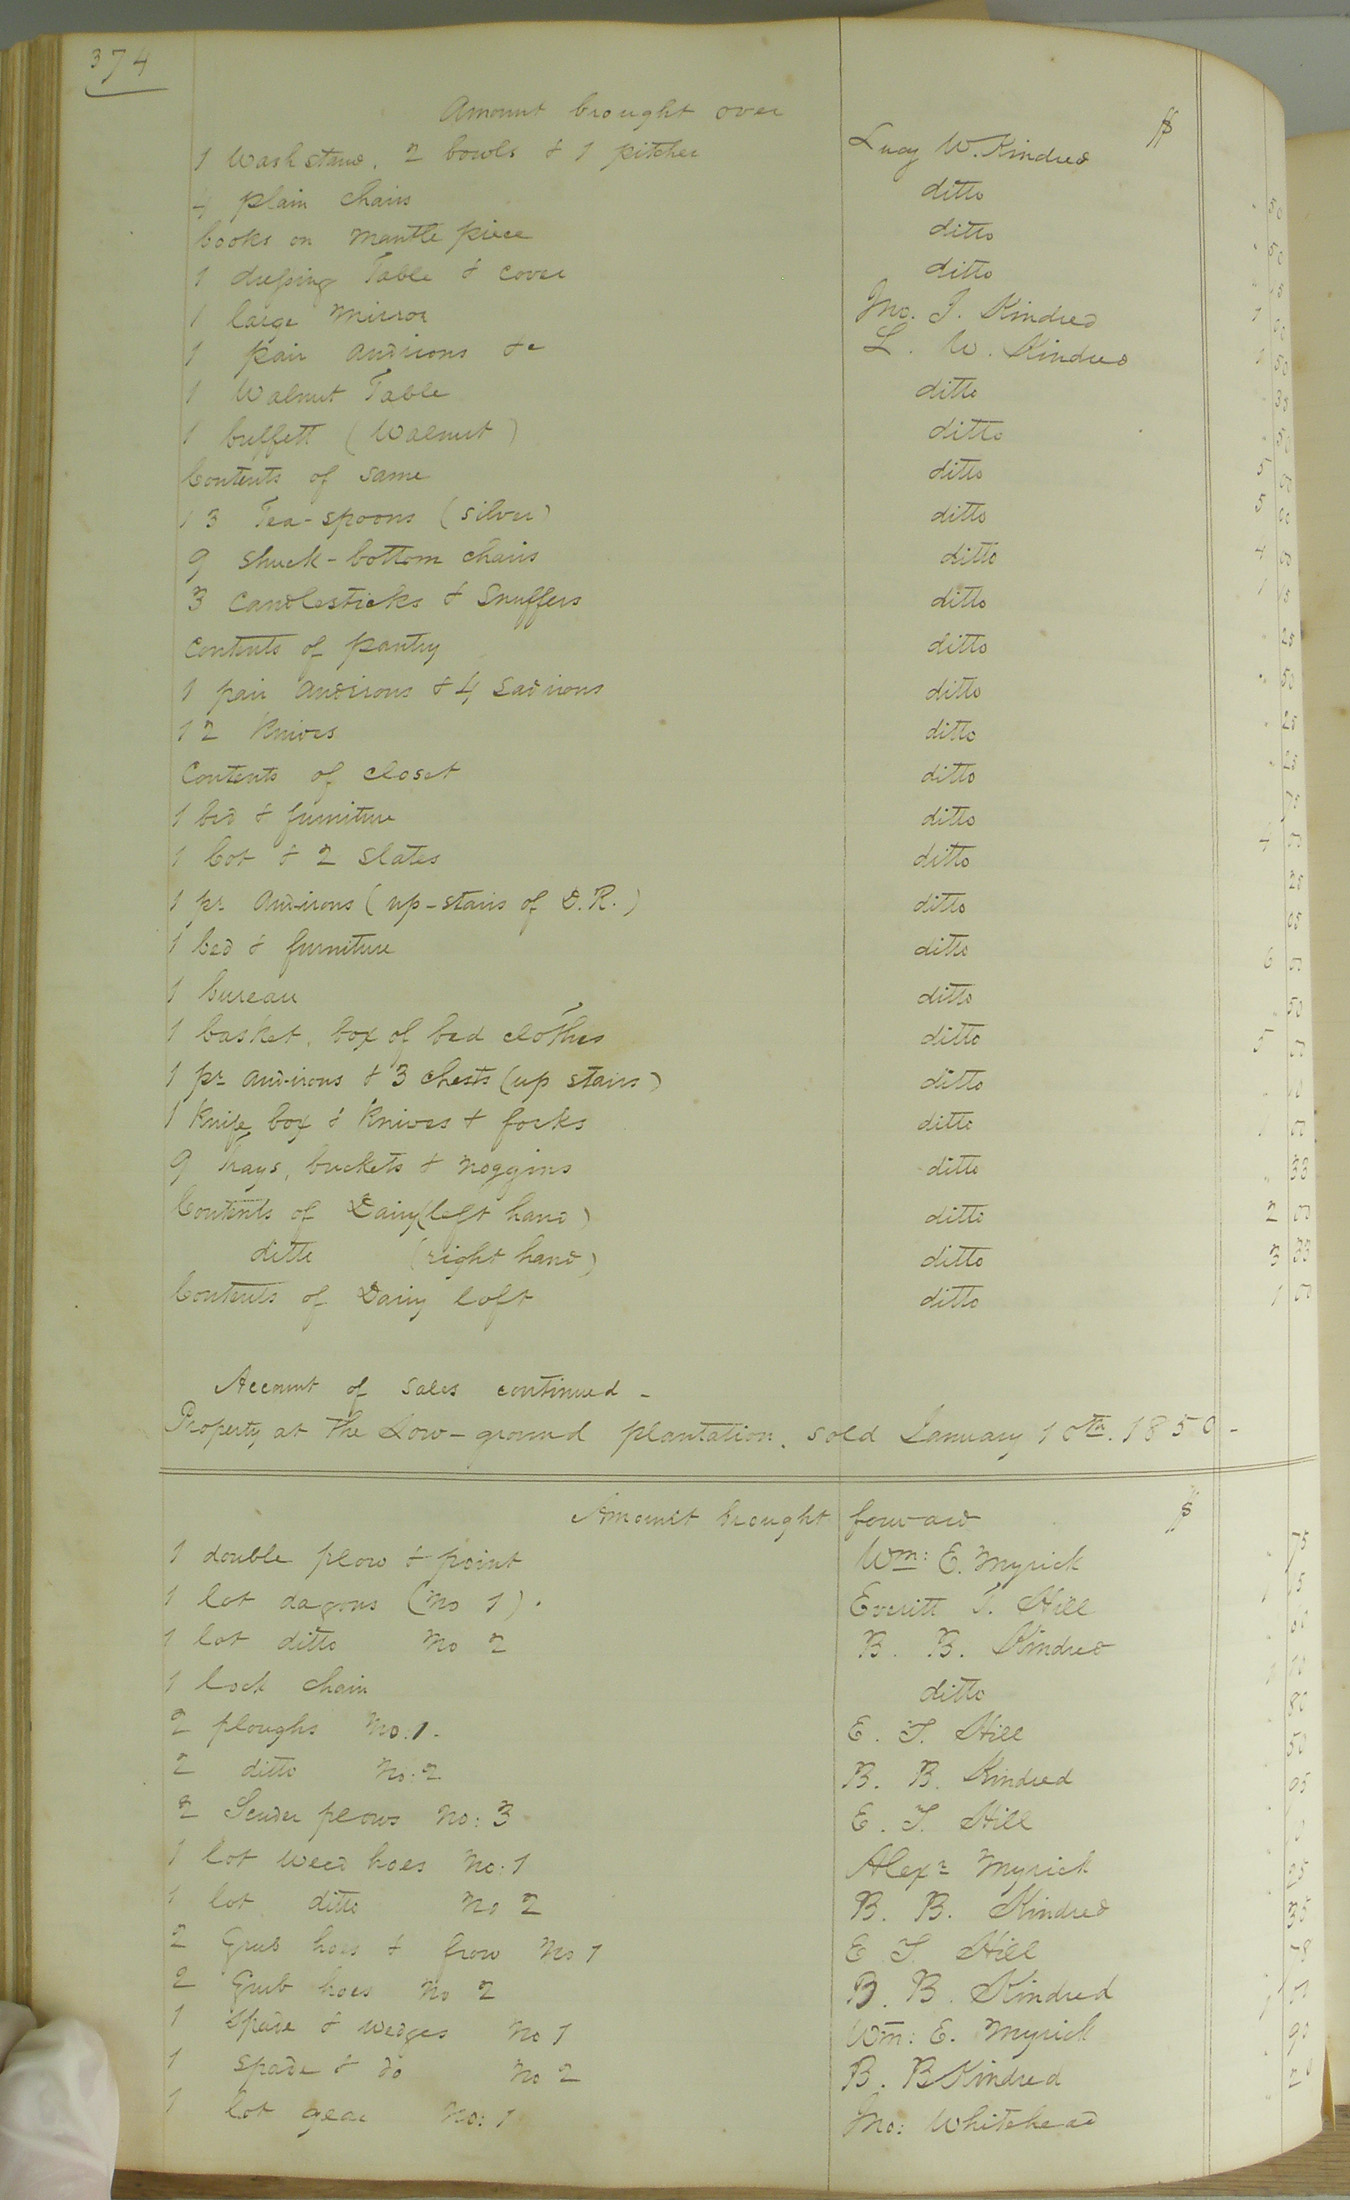 374
Amount brought over $
1 Wash stand, 2 bowls & 1 pitcher Lucy W. Kindred
4 plain chairs ditto " 50
books on Mantle piece ditto " 50
1 dressing Table & cover ditto
1 large Mirror Jno. J. Kindred 1
1 pair andirons &c L. W. Kindred 1 50
1 Walnut Table ditto 33
1 buffett (Walnut) ditto 50
Contents of same ditto 5
13 Tea-spoons (silver) ditto 5 00
9 shuck-bottom chairs ditto 4 50
3 Candlesticks & Snuffers ditto 1
Contents of pantry ditto 25
1 pair andirons & 4 Sadirons ditto " 50
12 Knives ditto " 25
Contents of closet ditto " 25
1 bed & furniture ditto 75
1 Cot & 2 Slates ditto 4
1 pr andirons (up-stairs of D.R.) ditto
1 bed & furniture ditto 05
1 bureau ditto 6
1 basket, box of bed clothes ditto " 50
1 pr andirons & 3 chests (up stairs) ditto 5
1 Knife box & Knives & forks ditto
9 trays, buckets & noggins ditto
Contents of Dairy (left hand) ditto " 33
ditto (right hand) ditto 2
Contents of Dairy loft ditto 3 33
1 50
Account of sales continued -
Property at the Low-ground plantation, sold January 10th. 1850 -
Amount brought forward $
1 double plow & point Wm: E. Myrick " 75
1 lot dagons (No 1). Everitt T. Hill
1 lot ditto No 2 B. B. Kindred
1 lock chain ditto
2 ploughs No: 1. E. T. Hill 80
2 ditto No: 2 B. B. Kindred 50
2 plows No: 3 E. T. Hill 05
1 lot weed hoes No: 1 Alexr Myrick
1 lot ditto No 2 B. B. Kindred 25
2 Grub hoes & frow No 1 E T. Hill 35
2 Grub hoes No 2 B. B. Kindred 78
1 Spade & wedges No 1 Wm: E. Myrick 1
1 spade & do No 2 B. B Kindred 90
1 lot gear No: 1 Jno: Whitehead